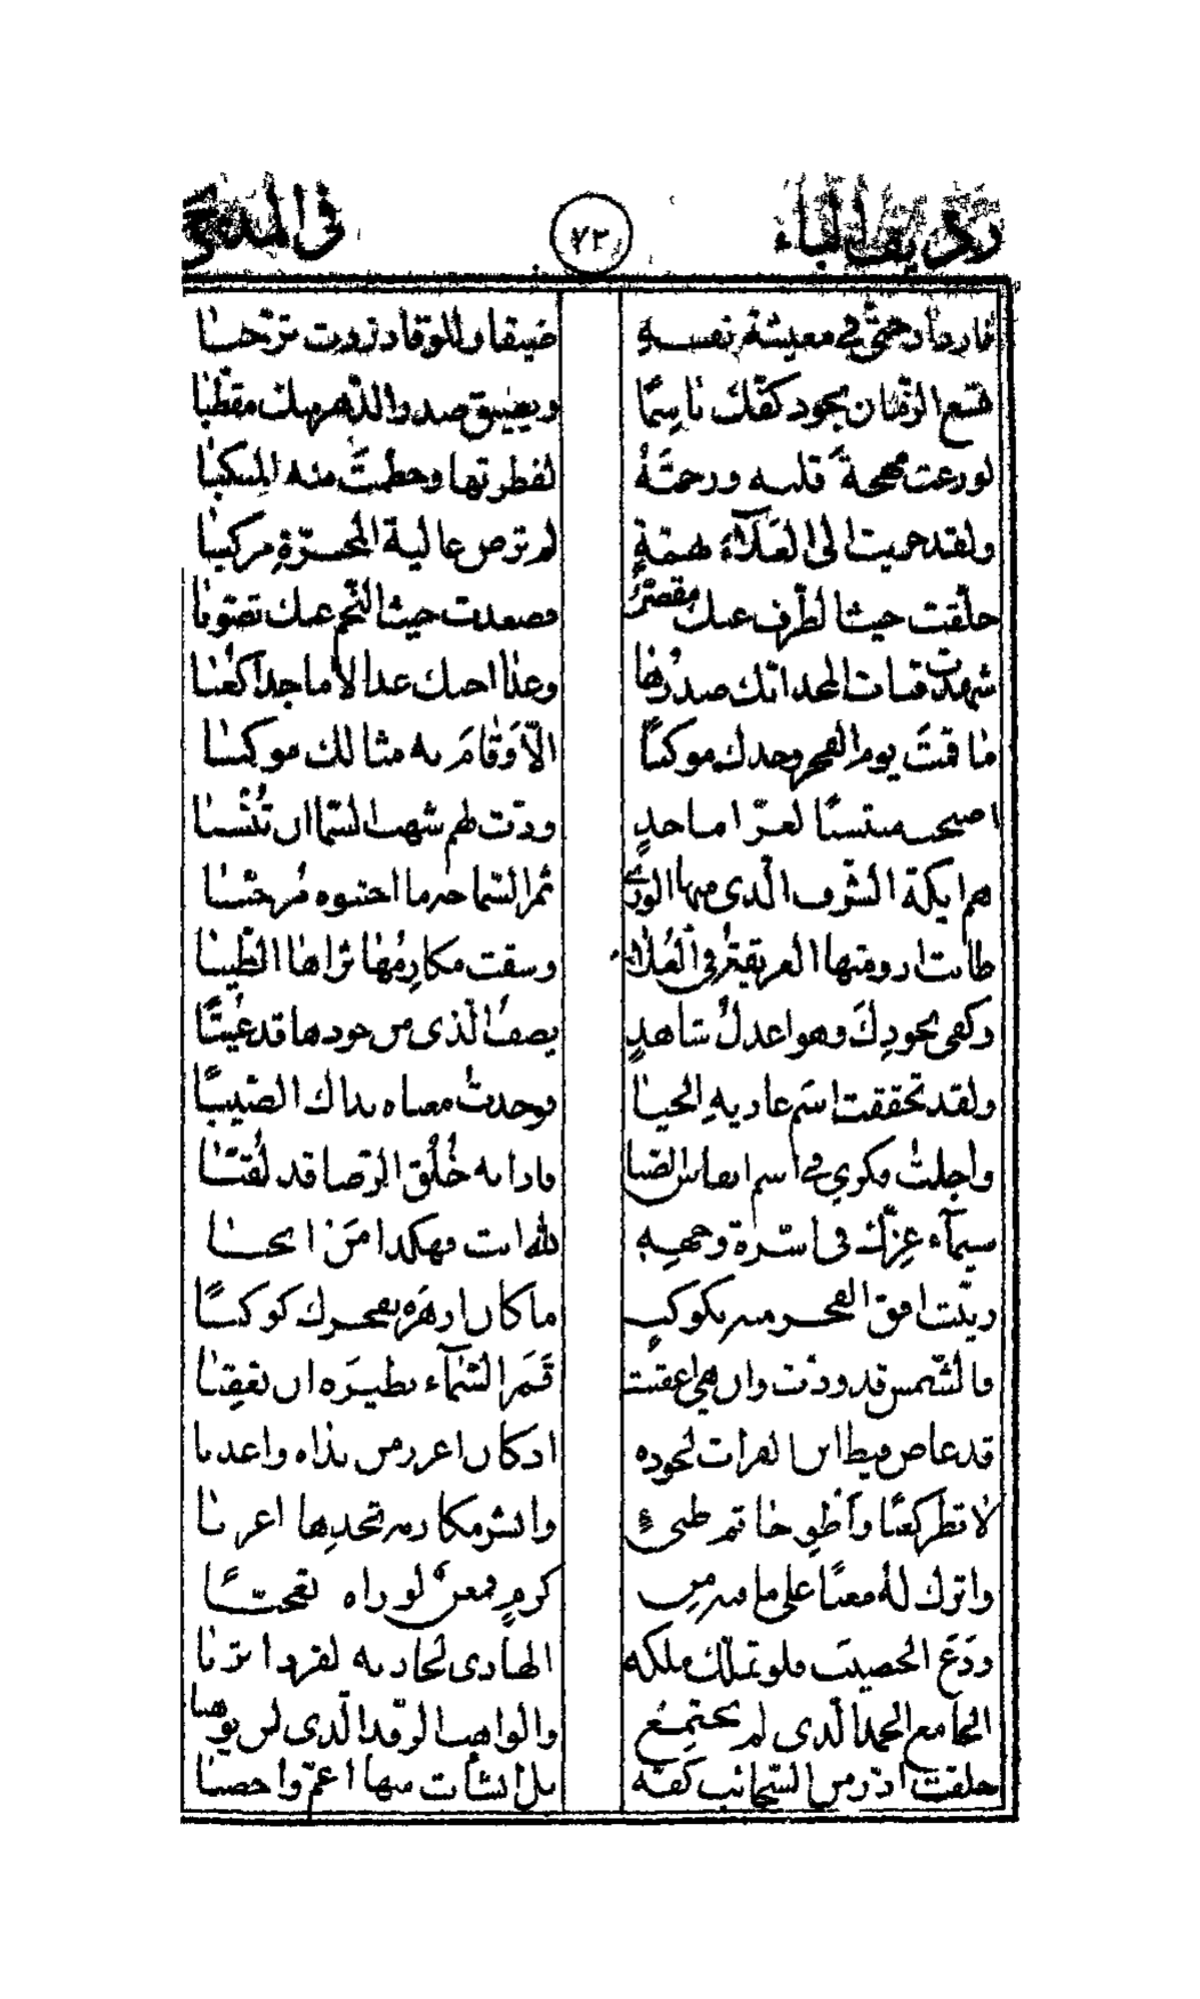 رديف الباء ٧٣ في المديح
معيشة نفسه ضيقا وللوقاد ترحبا
الزمان بجود كفك باسما ويضيق صدر والدهر منك مقطبا
لو رعت مهجة قلبه ورحمته لفطرتها وحطمت منه المنكبا
ولقد حويت الى العلاء همة لم ترض عالية المجرة مركبا
حلقت حيث الطرف عنك مقصر وصعدت حيث النجم عنك تصوبا
شهدت المجد انك صدرها
ما قمت يوم الفخر وحدك موكبا الا وقام به مثالك موكبا
منتسبا لعز اماجد ودت لهم شهب السما ان تنسبا
هم ايكة الشرف الذي منها الورى ثمر السماحة ما اجتنوه مرحبا
طابت ارومتها العريقة في العلا وسقت مكارمها ثراها الطيبا
وكفى بجودك وهو اعدل شاهد يصف الذي من جودها قد غيبا
ولقد تحققت اسم عادية الحيا فوجدت معناه نداك الصيبا
واجلت فكري في اسم انفاس الصبا فاذا به خلق الرضا قد لقبا
سيماء عزك في اسرة وجهه لله انت فهكذا من انجبا
زينت افق الفخر منه بكوكب ما كان ازهره بفخرك كوكبا
فالشمس قد ودت وان هي اعقبت قمر السماء نظيره ان تعقبا
الفرات لجوده اذ كان اغزر من نداه واعذبا
لا تطر كعبا واطو خاتم طيئ وانشر مكارمه تجدها اغربا
واترك له معنا على ما فيه من كرم فمعن لو راه تعجبا
ودع الخصيب فلو تملك ملكه الهادي لجاد به لفرد اتربا
الجامع الحمد الذي لم يجتمع والواهب الرفد الذي لن يوهبا
خلقت ادر من السحائب كفه بل انشات منها اعم واخصبا